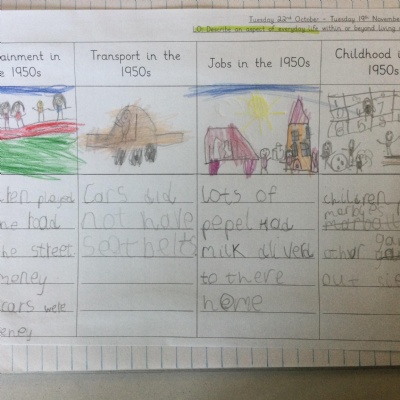 Tuesday 22nd October - Tuesday 19th November
L.O: Describe an aspect of everyday life within or beyond living
ainment in
e 1950s
Transport in the
1950s
Jobs in the 1950s
Childhood in
1950s
played
road
the street
money
cars were
Cars did
not have
seat belts
Lots of
pepel Had
milk diliverd
to there
home
children
marbles
out